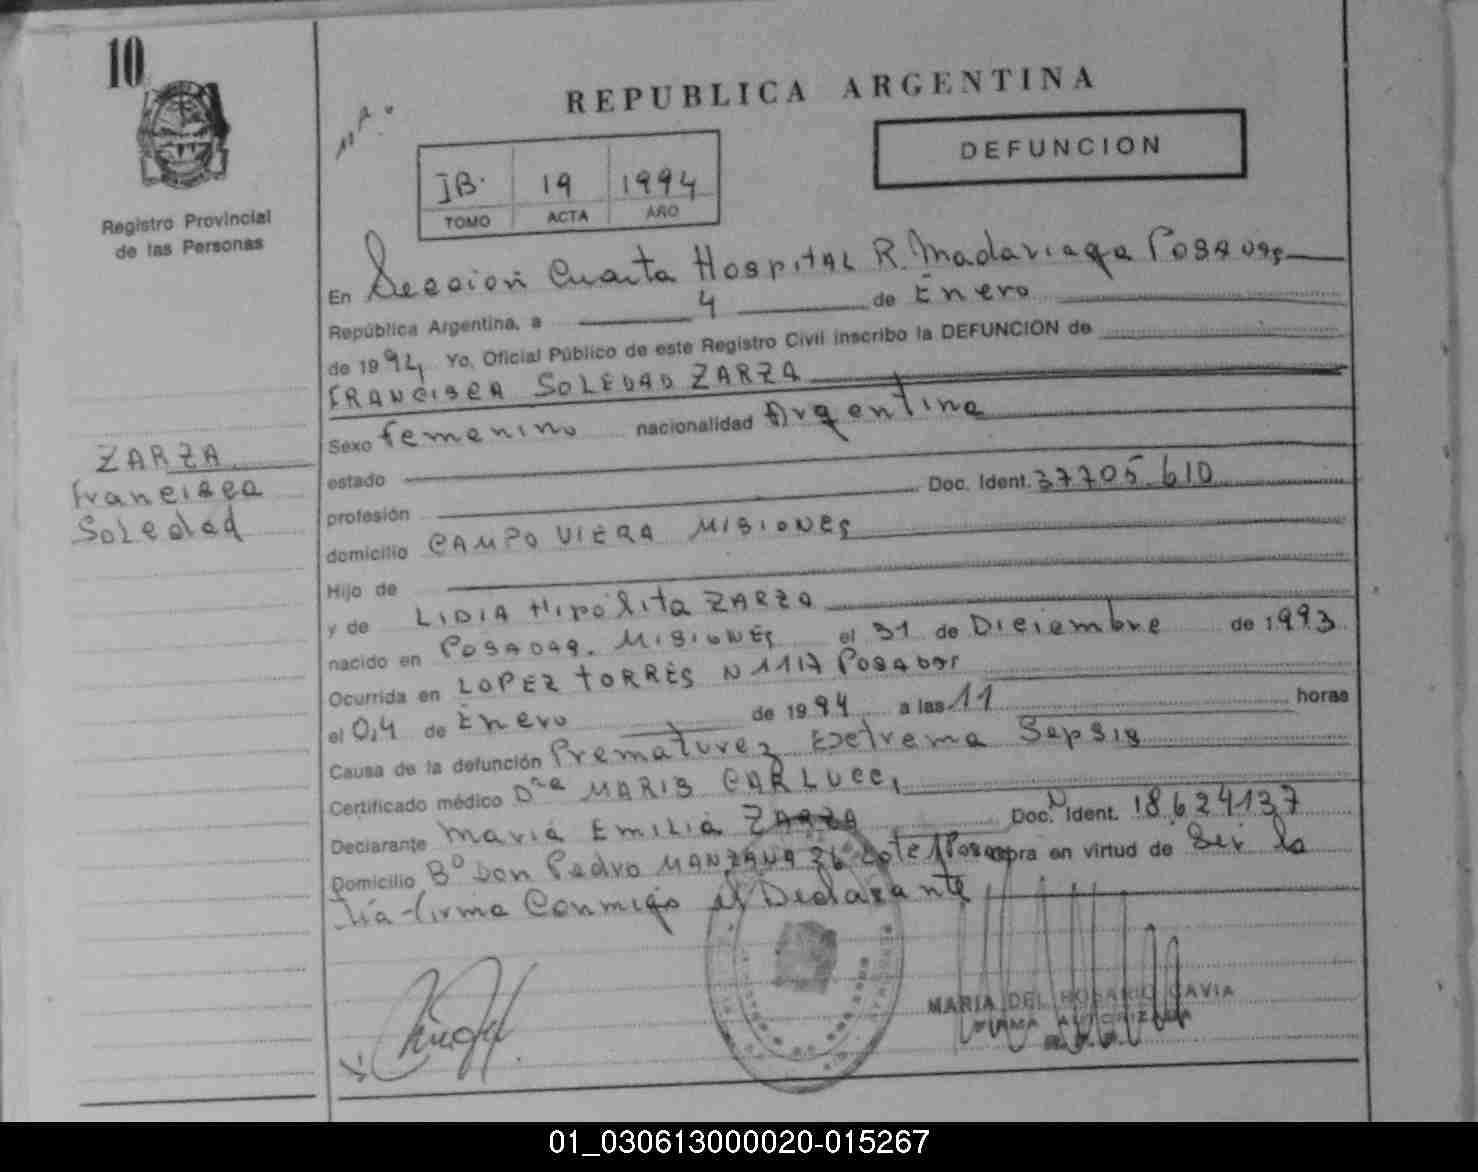 10
REPUBLICA ARGENTINA
DEFUNCION
IB. 19 1994
TOMO ACTA AÑO
Registro Provincial
de las Personas
En Sección Cuarta Hospital R. Madariaga Posadas
República Argentina, a 4 de Enero
de 1994 Yo, Oficial Público de este Registro Civil inscribo la DEFUNCION de
FRANCISCA SOLEDAD ZARZA
Sexo femenino nacionalidad Argentina
ZARZA
Francisca
Soledad
estado
profesión Doc. Ident. 37705.610
domicilio CAMPO VIERA MISIONES
Hijo de
y de LIDIA Hipólita ZARZA
nacido en POSADAS. MISIONES el 31 de Diciembre de 1993
Ocurrida en LOPEZ TORRES N 1117 Posadas
el 04 de Enero de 1994 a las 11 horas
Causa de la defunción Prematurez Extrema Sepsis
Certificado médico Dra MARIS CARLUCCI
Declarante Maria EMILIA ZARZA Doc. N Ident. 18624137
Domicilio B° Don Pedro MANZANA 36 Lote 1 Posadas obra en virtud de Ser la
tía-firma Conmigo el Declarante
MARIA DEL ROSARIO GAVIA
FIRMA AUTORIZADA
01_030613000020-015267